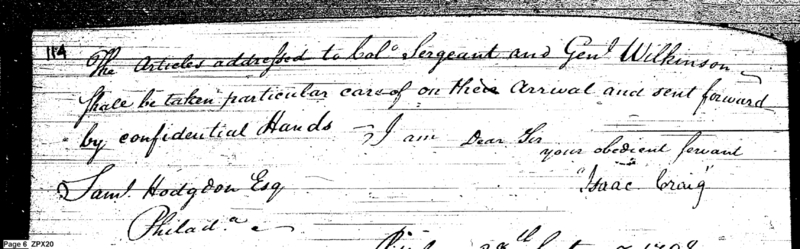 114
The Articles addressed to Colo Sergeant and Genl Wilkinson
shall be taken particular care of on their Arrival and sent forward
by confidential Hands — I am Dear Sir
your obedient servant
Saml. Hodgdon Esq "Isaac Craig"
Philada
Page 6 ZPX20